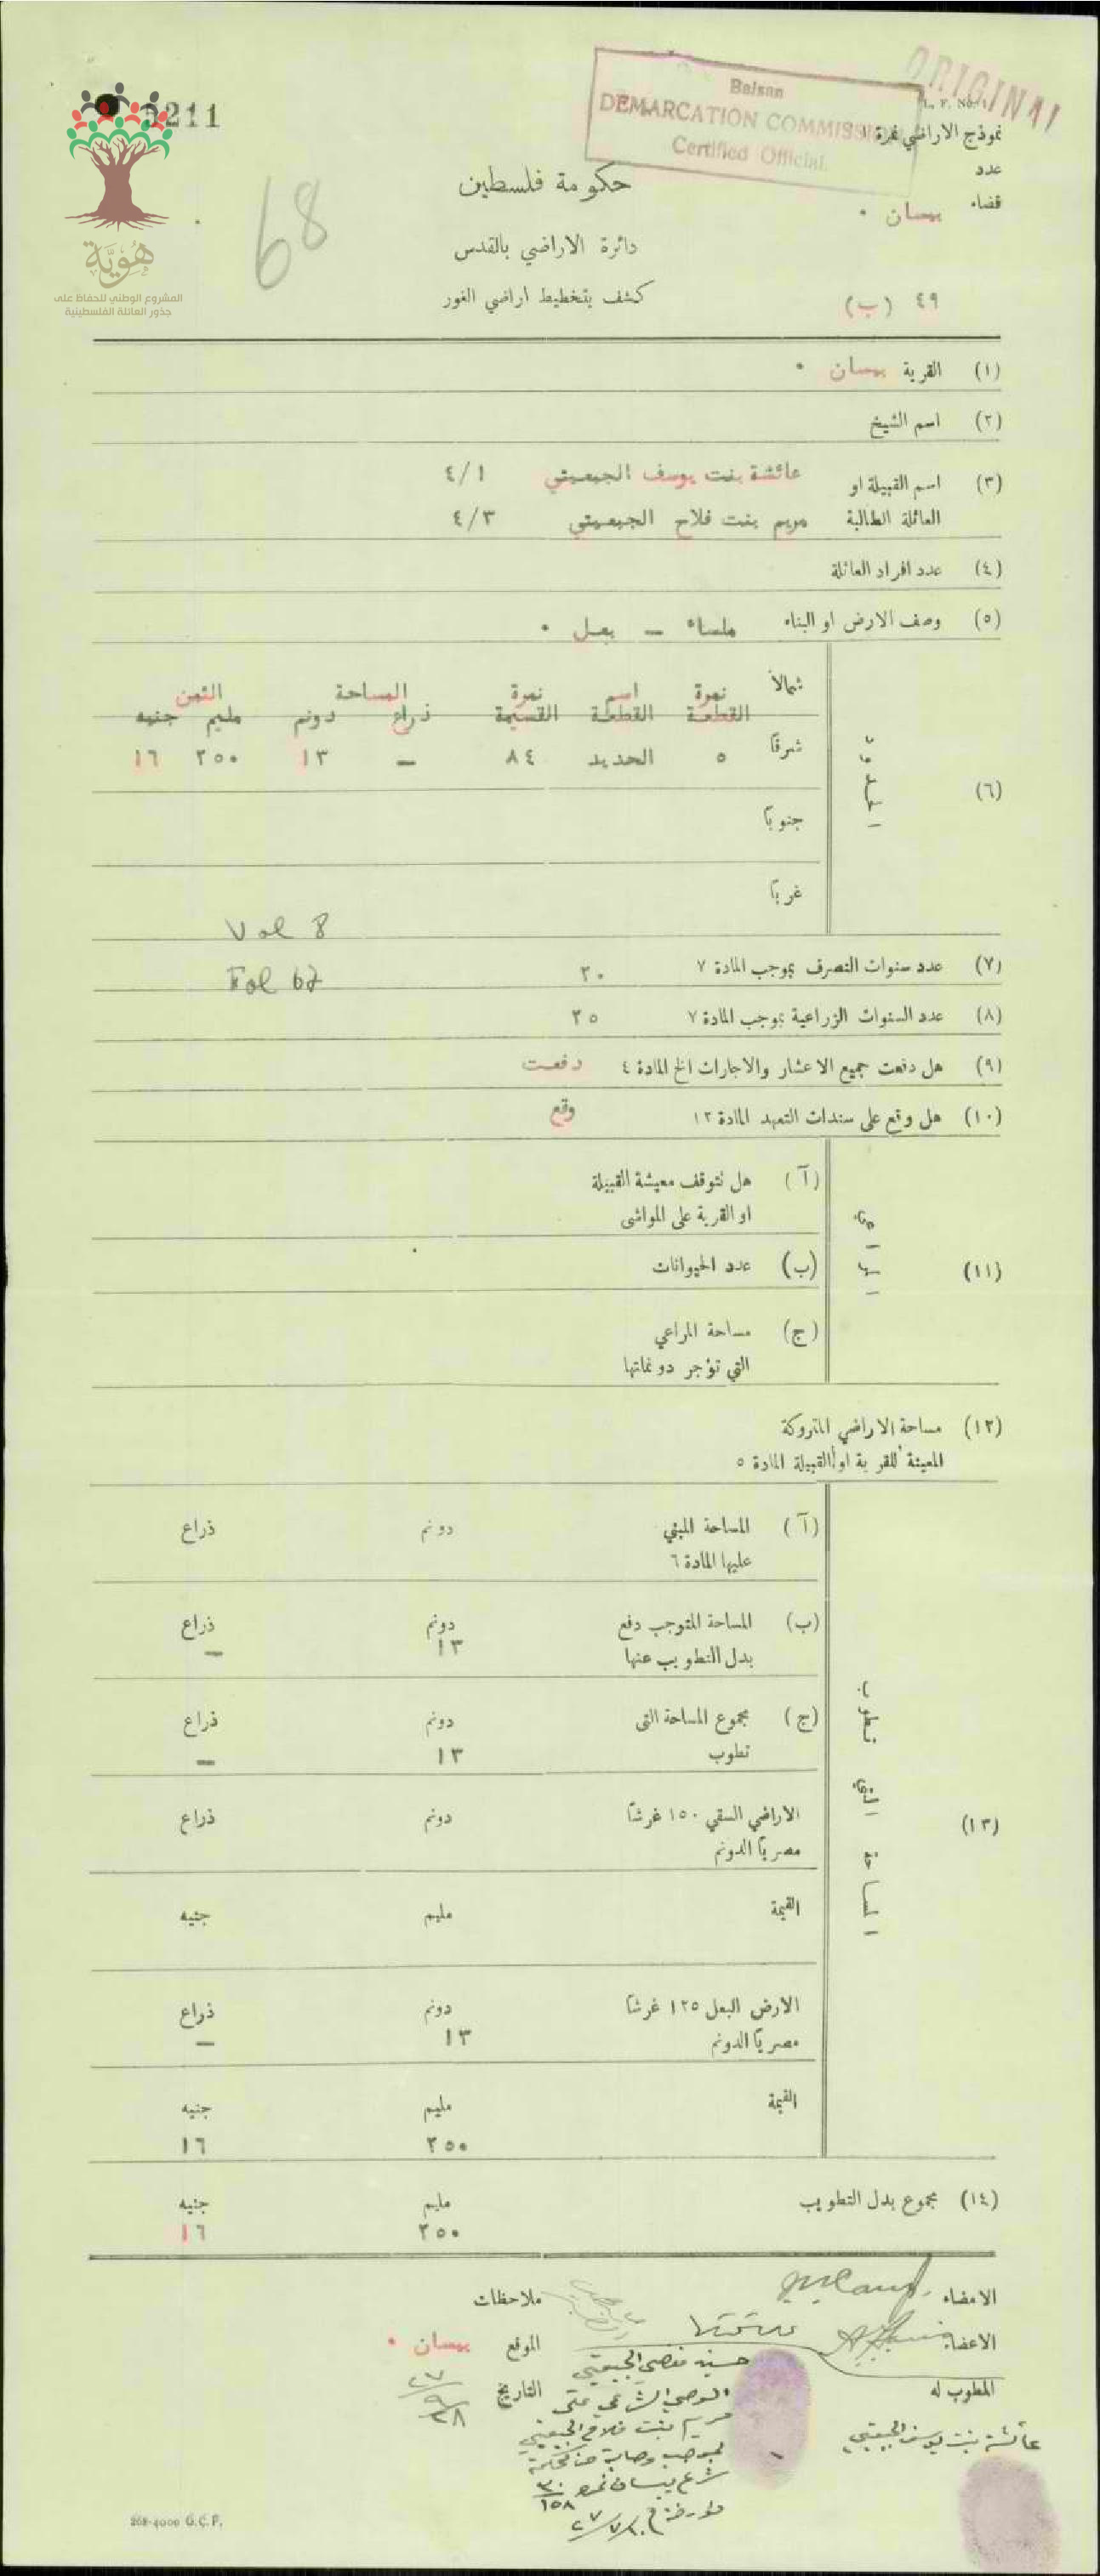 5211
ORIGINAL
Beisan
DEMARCATION COMMISSION
Certified Official.
L. F. No. 1
نموذج الاراضي نمرة ١
عدد
قضاء بيسان .
٤٩ (ب)
68
هُوِيَّة
المشروع الوطني للحفاظ على
جذور العائلة الفلسطينية
حكومة فلسطين
دائرة الاراضي بالقدس
كشف بتخطيط اراضي الغور
(١) القرية بيسان .
(٢) اسم الشيخ
(٣) اسم القبيلة او عائشة بنت يوسف الجبعيتي ٤/١
العائلة الطالبة مريم بنت فلاح الجبعيتي ٤/٣
(٤) عدد افراد العائلة
(٥) وصف الارض او البناء ملساء — بعل .
(٦) الحدود
شمالاً نمرة اسم نمرة المساحة الثمن
القطعة القطعة القسيمة ذراع دونم مليم جنيه
شرقاً ٥ الحديد ٨٤ — ١٣ ٢٥٠ ١٦
جنوباً
غرباً
Vol 8
Fol 67
(٧) عدد سنوات التصرف بموجب المادة ٧ ٢٠
(٨) عدد السنوات الزراعية بموجب المادة ٧ ٢٥
(٩) هل دفعت جميع الاعشار والاجارات الخ المادة ٤ دفعت
(١٠) هل وقع على سندات التعهد المادة ١٢ وقع
(١١)
(آ) هل تتوقف معيشة القبيلة
او القرية على المواشي
(ب) عدد الحيوانات
(ج) مساحة المراعي
التي تؤجر دونماتها
(١٢) مساحة الاراضي المتروكة
المعينة للقرية او القبيلة المادة ٥
(١٣) المساحة التي تطوب
(آ) المساحة المبني دونم ذراع
عليها المادة ٦
(ب) المساحة المتوجب دفع دونم ذراع
بدل التطويب عنها ١٣ —
(ج) مجموع المساحة التي دونم ذراع
تطوب ١٣ —
الاراضي السقي ١٥٠ غرشا دونم ذراع
مصرياً الدونم
القيمة مليم جنيه
الارض البعل ١٢٥ غرشا دونم ذراع
مصرياً الدونم ١٣ —
القيمة مليم جنيه
٢٥٠ ١٦
(١٤) مجموع بدل التطويب مليم جنيه
٢٥٠ ١٦
الامضاء ملاحظات
الاعضاء الموقع بيسان .
المطوب له التاريخ ٢٧/٩/٢٨
عائشة بنت يوسف الجبعيتي
الجبعيتي
الوصي الشرعي على
مريم بنت فلاح الجبعيتي
بموجب وصاية من محكمة
شرع بيسان نمرو ٣٠/١٥٨
268-4000 G.C.P.